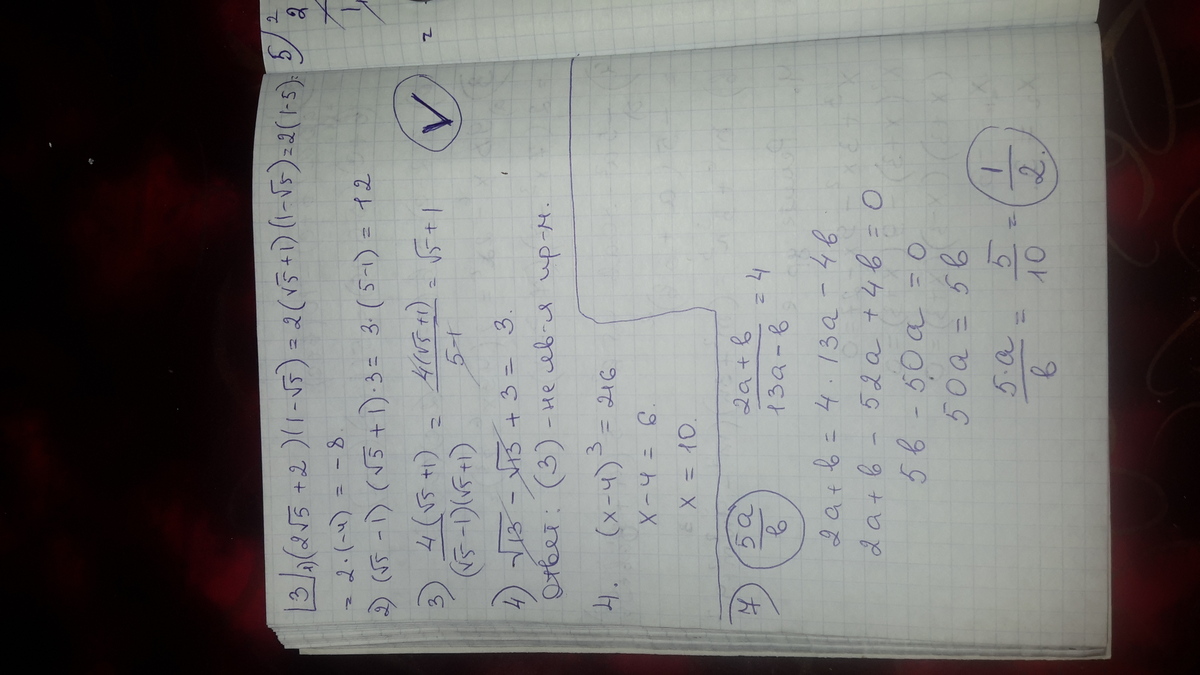 3 1) (2√5 + 2)(1-√5) = 2(√5+1)(1-√5) = 2(1-5) =
= 2·(-4) = -8.
2) (√5 - 1)(√5 + 1)·3 = 3·(5-1) = 12
3) 4(√5+1) / (√5-1)(√5+1) = 4(√5+1) / 5-1 = √5+1
V
4) √13 - √13 + 3 = 3.
Ответ: (3) - не явл-я ир-м.
4. (x-4)³ = 216
x - 4 = 6.
x = 10.
7) 5a/b 2a+b / 13a-b = 4
2a+b = 4·13a - 4b
2a+b - 52a + 4b = 0
5b - 50a = 0
50a = 5b
5·a/b = 5/10 = 1/2.
5) 2
2
=